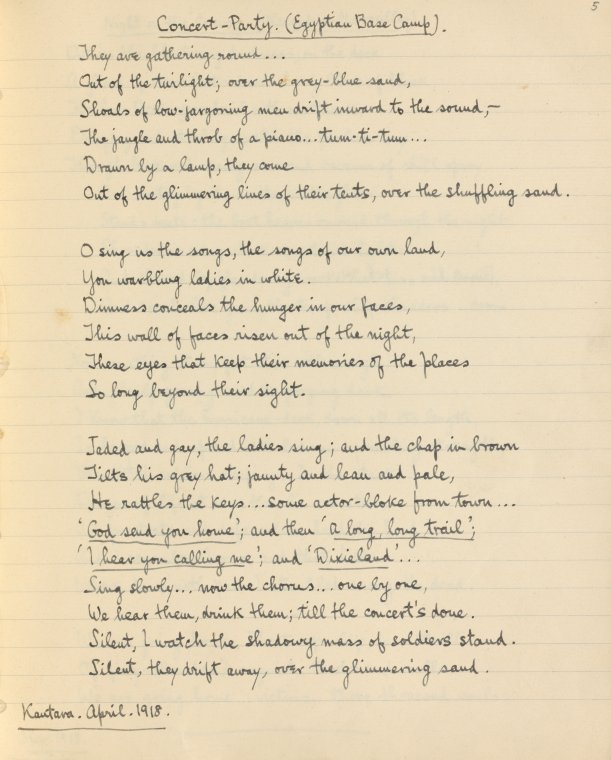 5
Concert-Party. (Egyptian Base Camp).
They are gathering round...
Out of the twilight; over the grey-blue sand,
Shoals of low-jargoning men drift inward to the sound,—
The jangle and throb of a piano...tum-ti-tum...
Drawn by a lamp, they come
Out of the glimmering lines of their tents, over the shuffling sand.
O sing us the songs, the songs of our own land,
You warbling ladies in white.
Dimness conceals the hunger in our faces,
This wall of faces risen out of the night,
These eyes that keep their memories of the places
So long beyond their sight.
Jaded and gay, the ladies sing; and the chap in brown
Tilts his grey hat; jaunty and lean and pale,
He rattles the keys...some actor-bloke from town...
'God send you home'; and then 'A long, long trail';
'I hear you calling me'; and 'Dixieland'...
Sing slowly...now the chorus...one by one,
We hear them, drink them; till the concert's done.
Silent, I watch the shadowy mass of soldiers stand.
Silent, they drift away, over the glimmering sand.
Kantara. April. 1918.